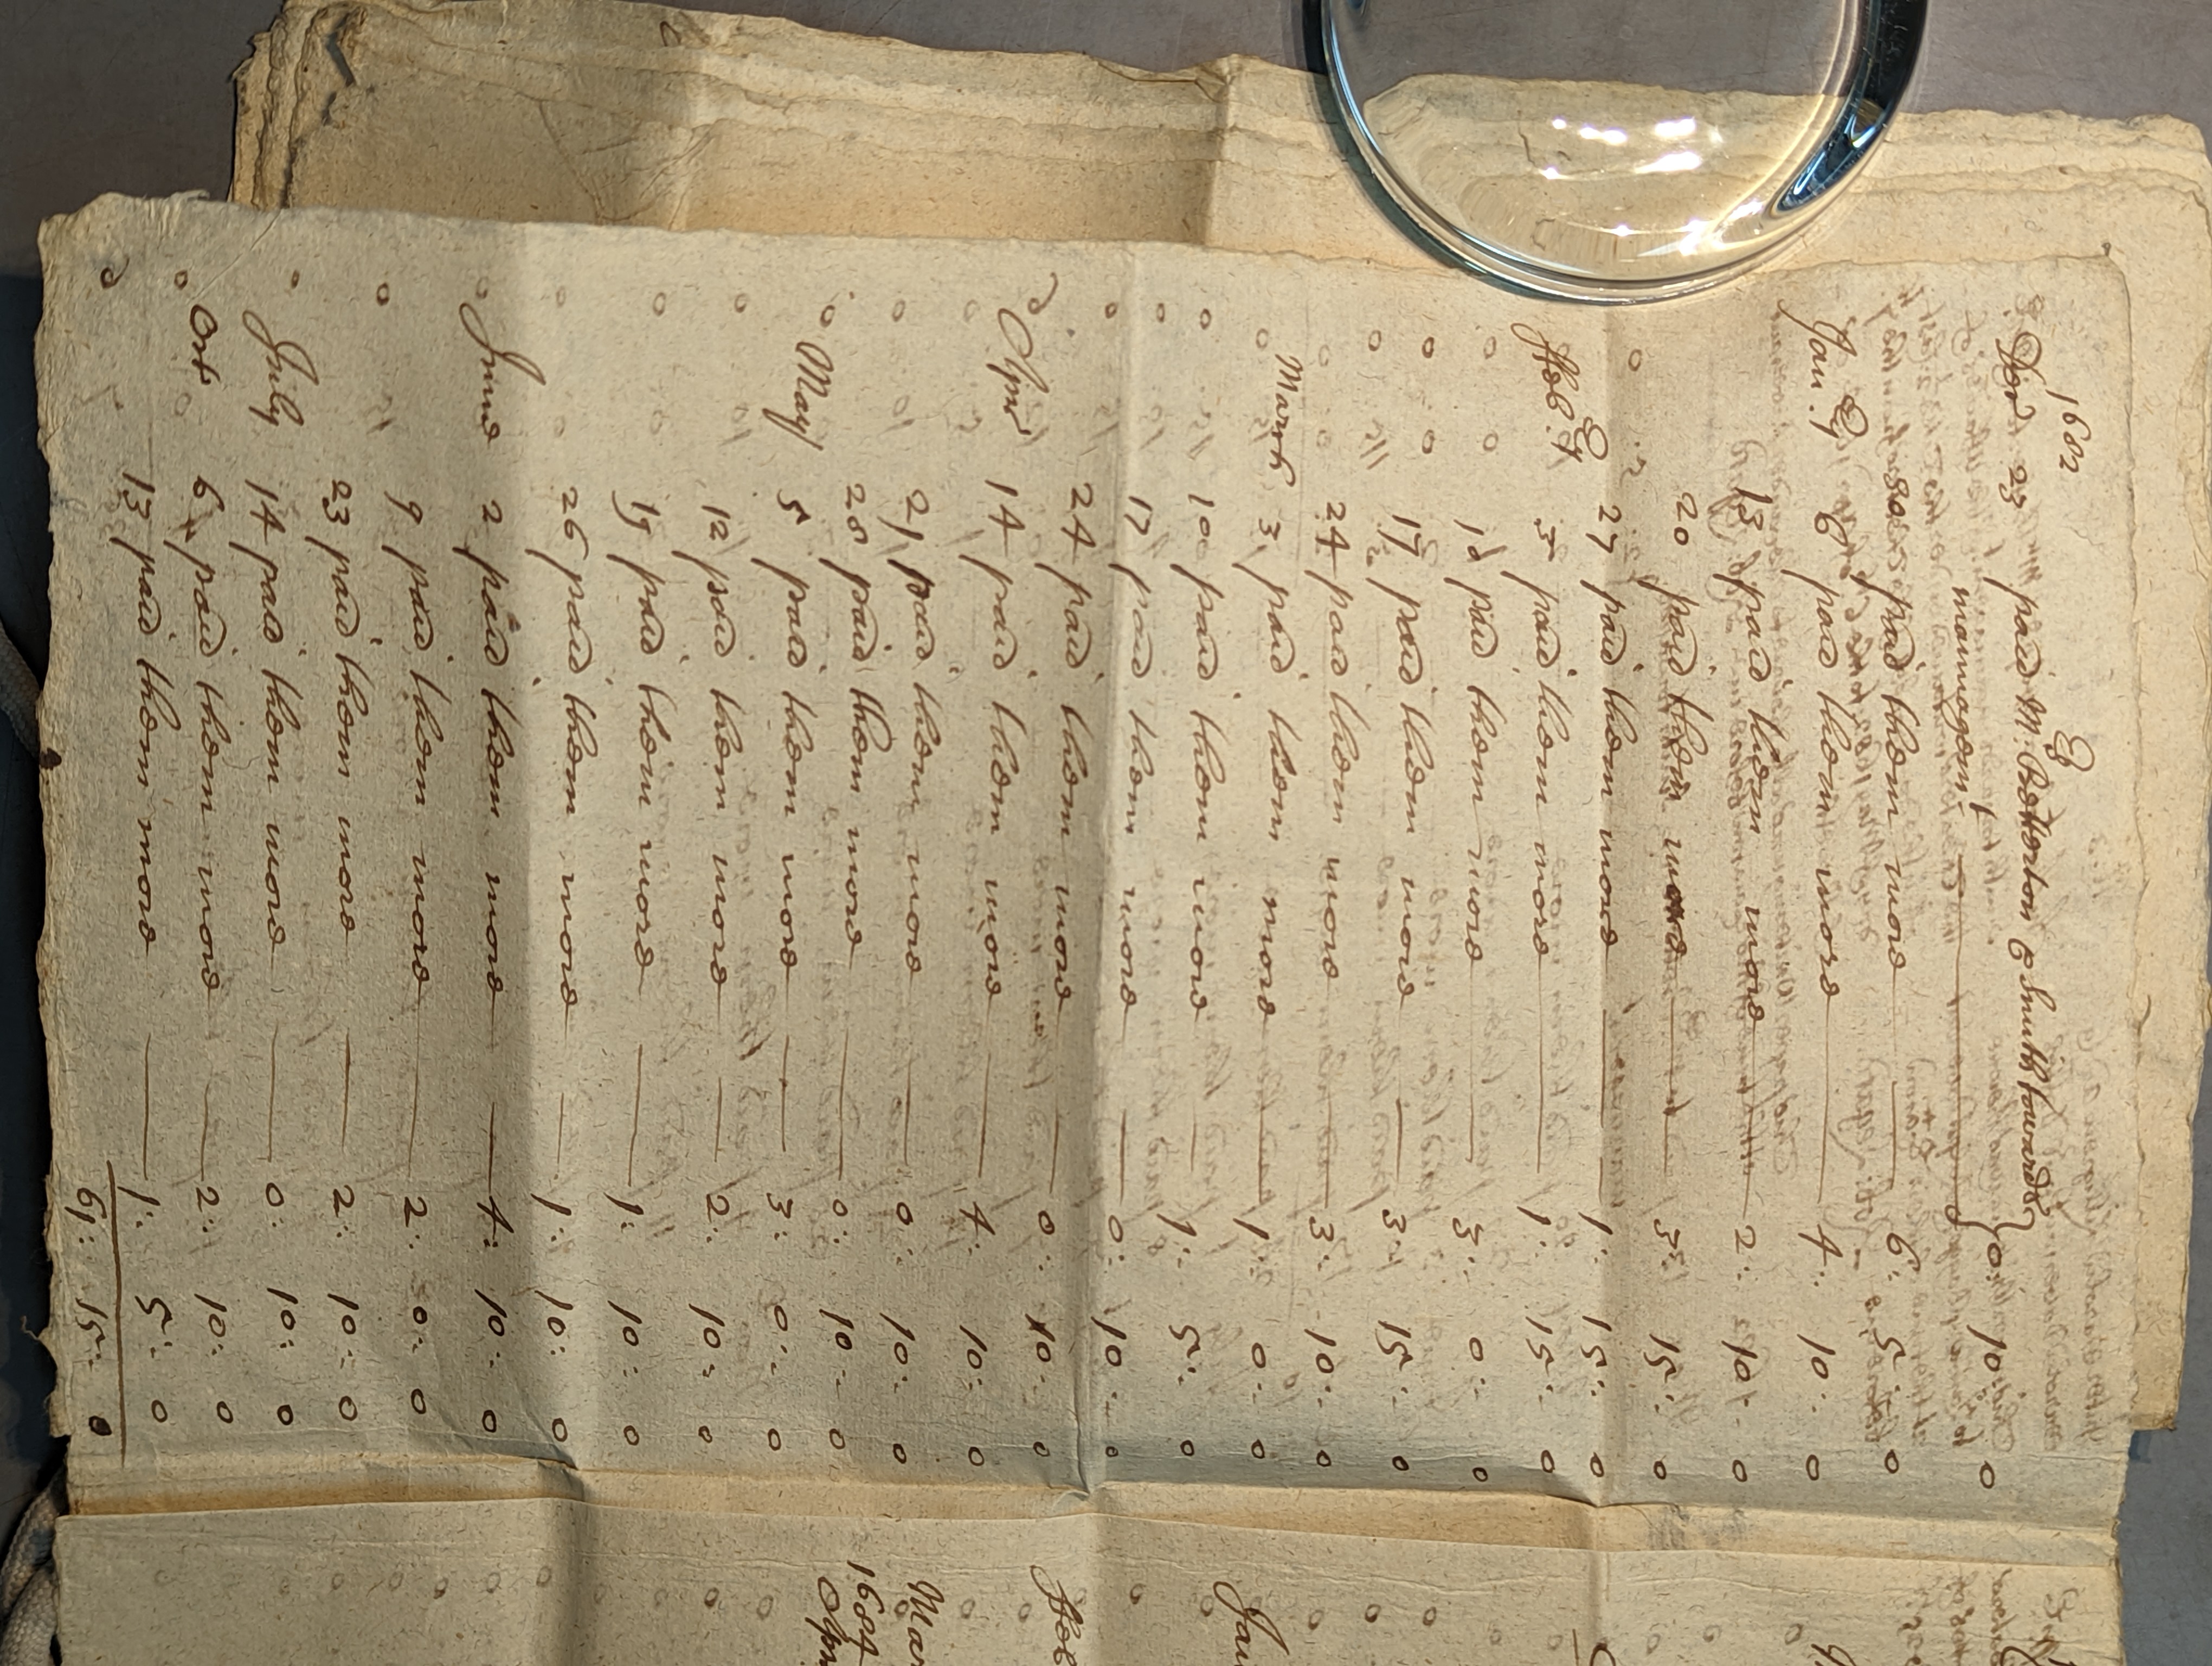 1682
Decr 23 paid Mr Betterton & Smith towards } 0: 10: 0
managemt
30 paid them more 6: 5: 0
Jan:ry 6 paid them more 4: 10: 0
13 paid them more 2: 10: 0
20 paid them more 3: 15: 0
27 paid them more 1: 15: 0
ffeb:ry 3 paid them more 1: 15: 0
10 paid them more 3: 0: 0
17 paid them more 3: 15: 0
24 paid them more 3: 10: 0
March 3 paid them more 1: 0: 0
10 paid them more 1: 5: 0
17 paid them more 0: 10: 0
24 paid them more 0: 10: 0
Apr 14 paid them more 4: 10: 0
21 paid them more 0: 10: 0
28 paid them more 0: 10: 0
May 5 paid them more 3: 0: 0
12 paid them more 2: 10: 0
19 paid them more 1: 10: 0
26 paid them more 1: 10: 0
June 2 paid them more 4: 10: 0
9 paid them more 2: 0: 0
23 paid them more 2: 10: 0
July 14 paid them more 0: 10: 0
Oct 6 paid them more 2: 10: 0
13 paid them more 1: 5: 0
61: 15: 0
Jan
ffeb
Mar
1684
Apr